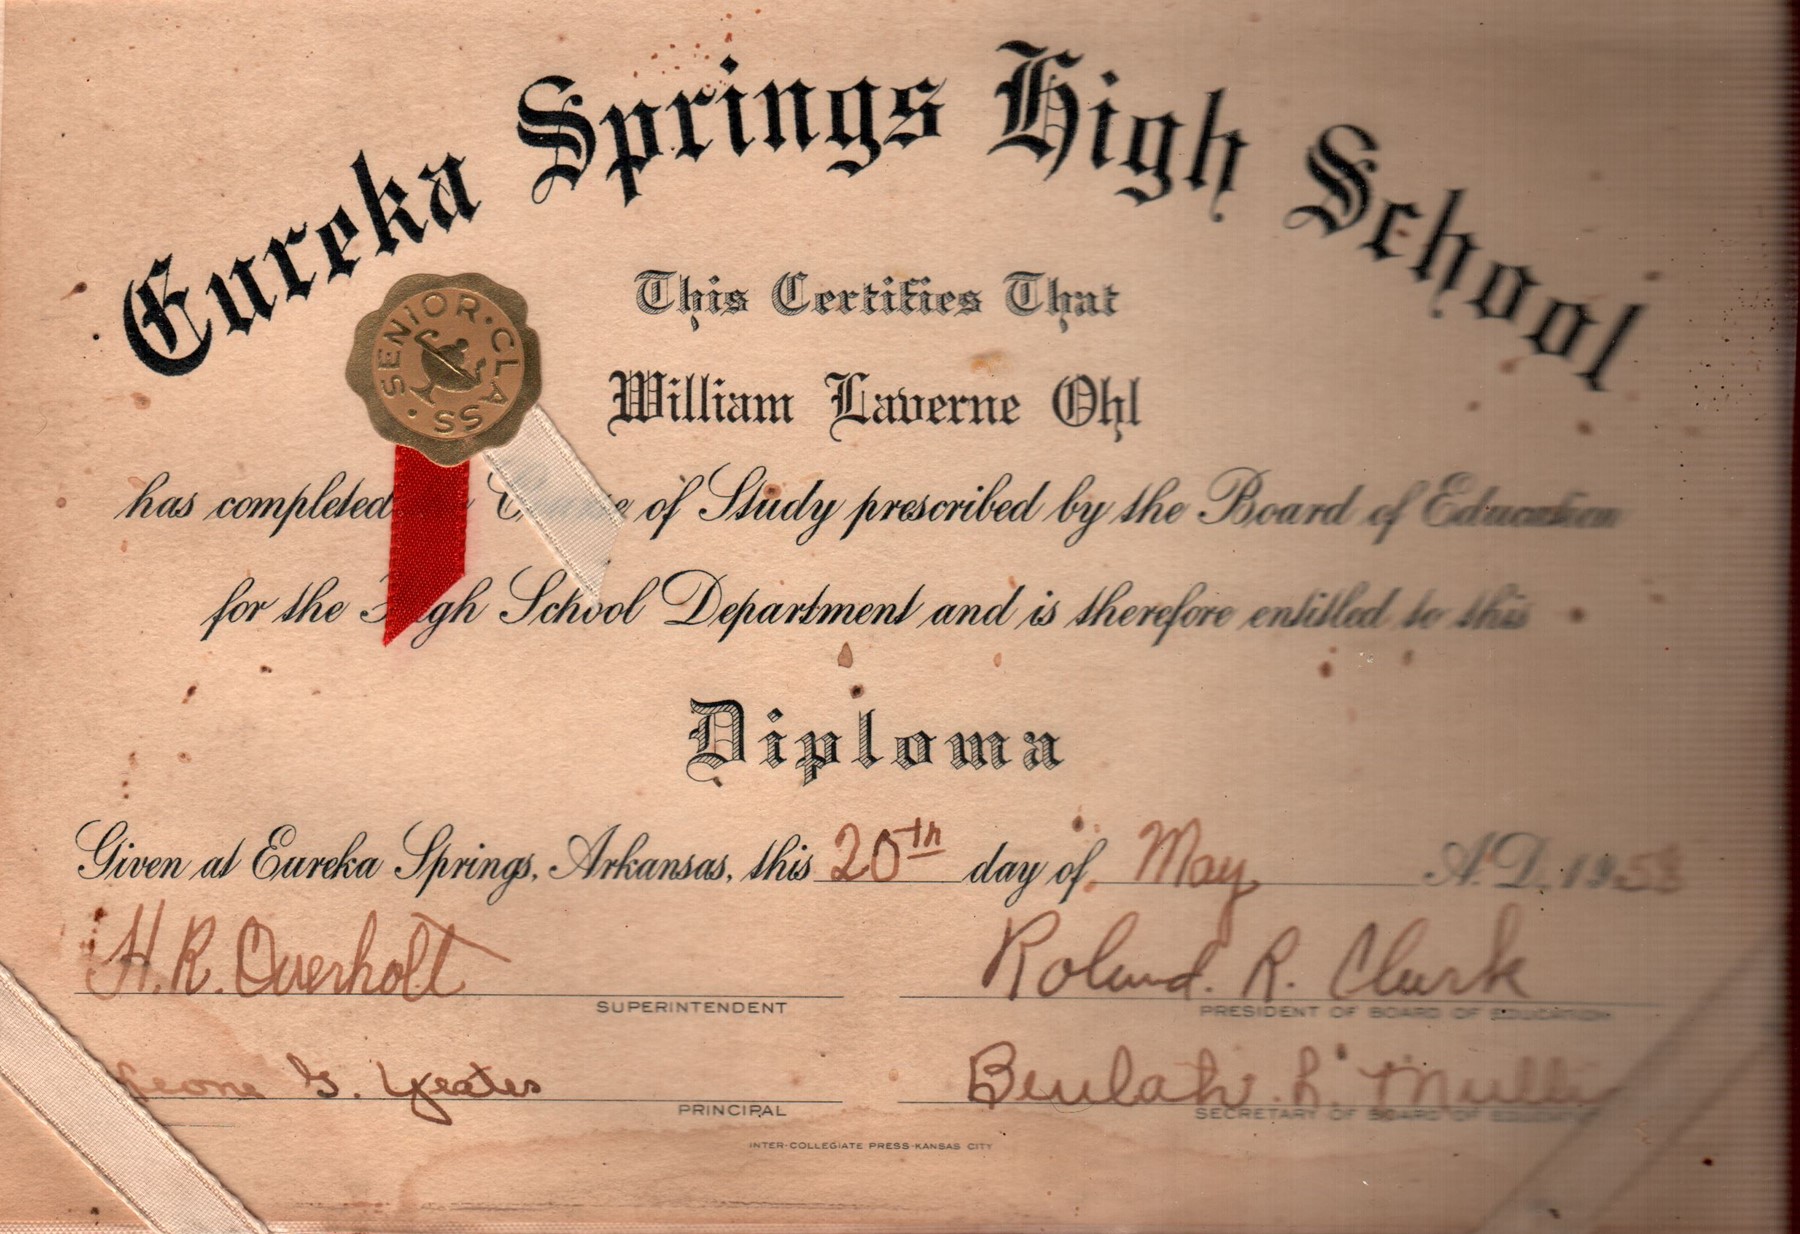 Eureka Springs High School
SENIOR · CLASS ·
This Certifies That
William Laverne Ohl
has completed of Study prescribed by the Board of Education
for the High School Department and is therefore entitled to this
Diploma
Given at Eureka Springs, Arkansas, this 20th day of May A.D. 195
H. R. Overholt
SUPERINTENDENT
Roland. R. Clark
PRESIDENT OF BOARD OF EDUCATION
G. Yeates
PRINCIPAL
Beulah. R.
SECRETARY OF BOARD OF EDUCATION
INTER-COLLEGIATE PRESS-KANSAS CITY